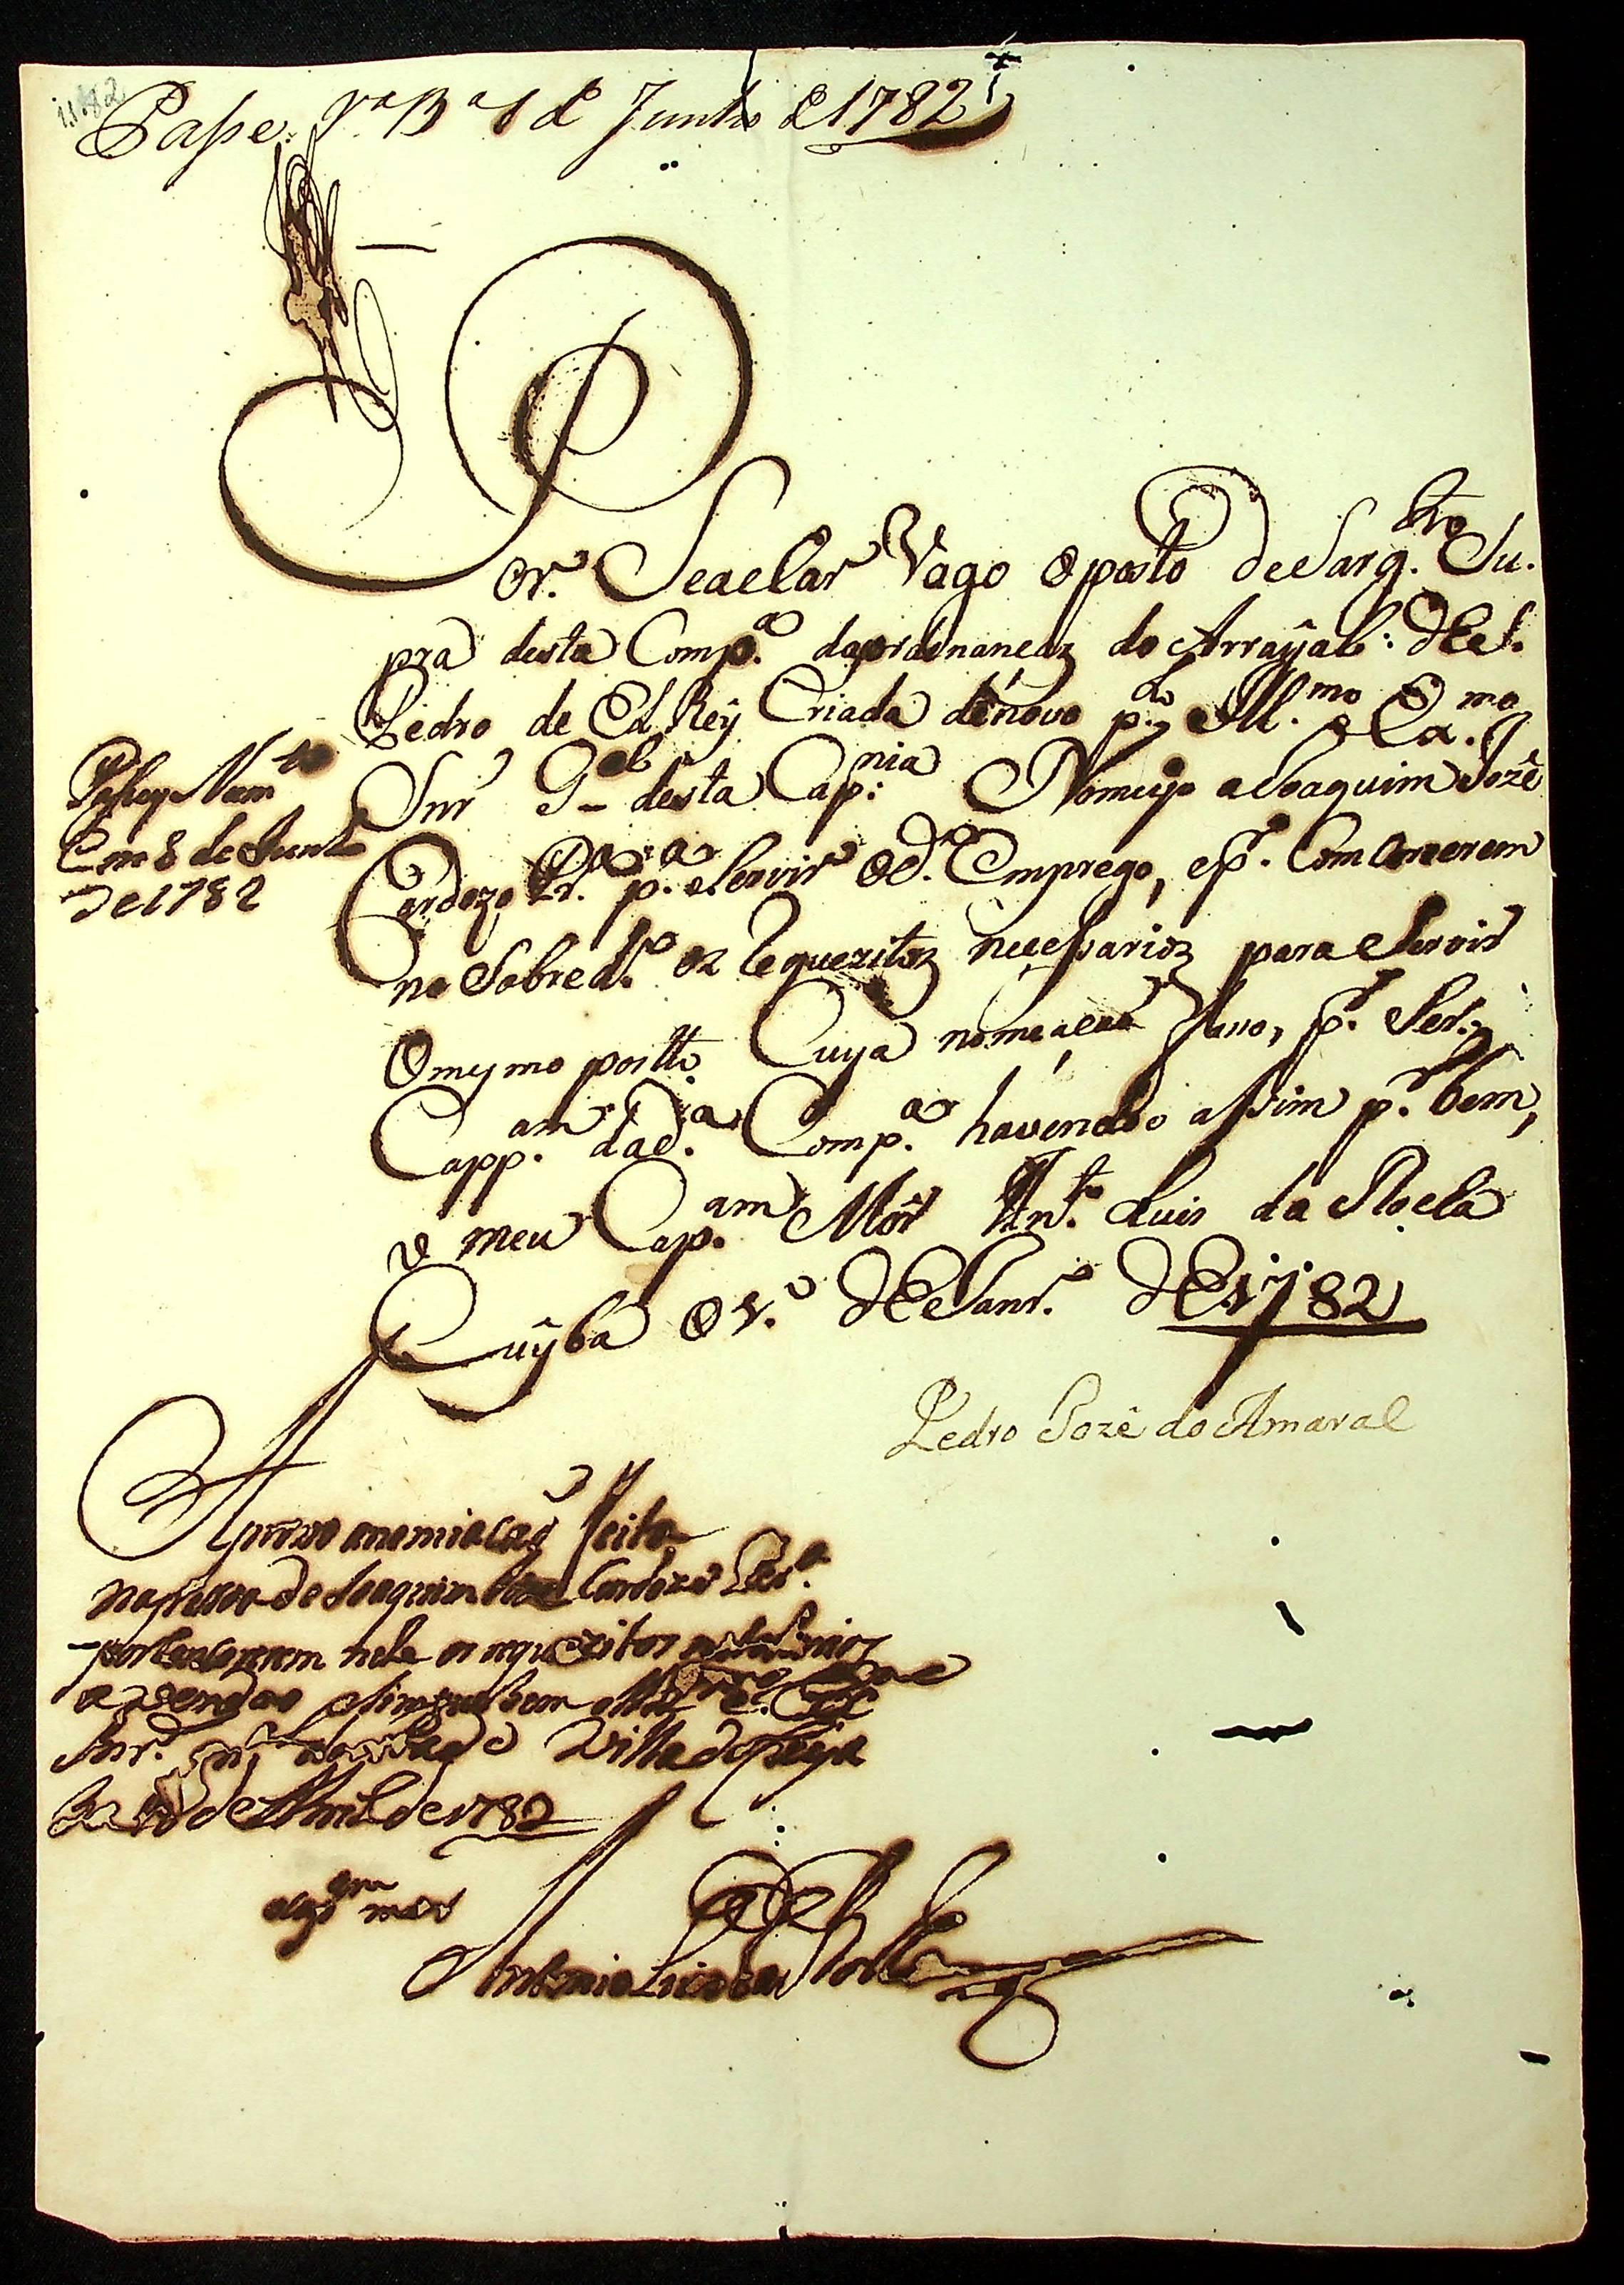 1782
Passe. V.ª B.ª 1 de Junho de 1782
Por. Se achar Vago O posto de Sarg.to Su.
pra desta Comp.ª das ordenancas do Arrayal: de S.
Pedro de El Rey Criada de novo p.lo Ill.mo e Ex.mo
Snr G.al desta Cap.nia Nomeyo a Joaquim Jozê
Cardozo Pr.ª p.ª Servir O d.º Emprego, e p.r Concorrerem
no Sobred.º os Requezitos necessarios para Servir
O mesmo postto Cuya nomeação faso, p.r Ser
Capp.am da d.ª Comp.ª havendo assim p.r bem,
o meu Cap.am Mor Ant.º Luis da Rocha
Cuyba O 1.º de Janr.º de 1782
Pedro Jozê do Amaral
Passey Num.to
Em 8 de Junho
de 1782
Aprovo a nomiacaõ feita
na pessoa de Joaquim Joze Cardozo
por Concorrerem nele os requezitos
avendo asim por bem o Ill.mo e Ex.mo
Snr. Villa do Cuja
de Abril de 1782
Cap.am mor
Antonio Luis da Rocha